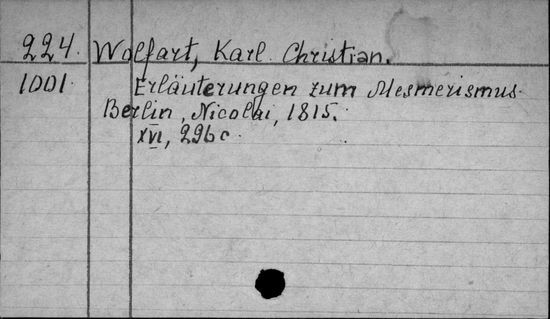 224. Wolfart, Karl Christian.
1001 Erläuterungen zum Mesmerismus.
Berlin, Nicolai, 1815.
XVI, 296 c.